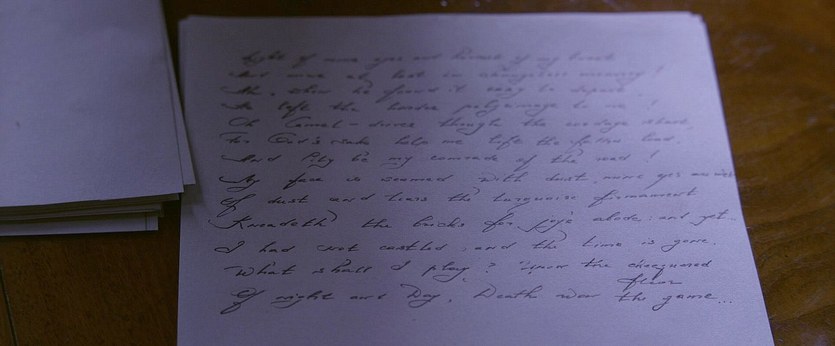 Light of mine eyes and harvest of my heart
And mine at last in changeless memory!
Ah, when he found it easy to depart
He left the harder pilgrimage to me!
Oh Camel-driver, though the cordage start
For God's sake help me lift the fallen load
And Pity be my comrade of the road!
My face is seamed with dust, mine eyes are wet.
Of dust and tears the turquoise firmament
Kneadeth the bricks for joy's abode; and yet...
I had not castled, and the time is gone.
What shall I play? Upon the chequered
floor
Of night and Day, Death won the game...